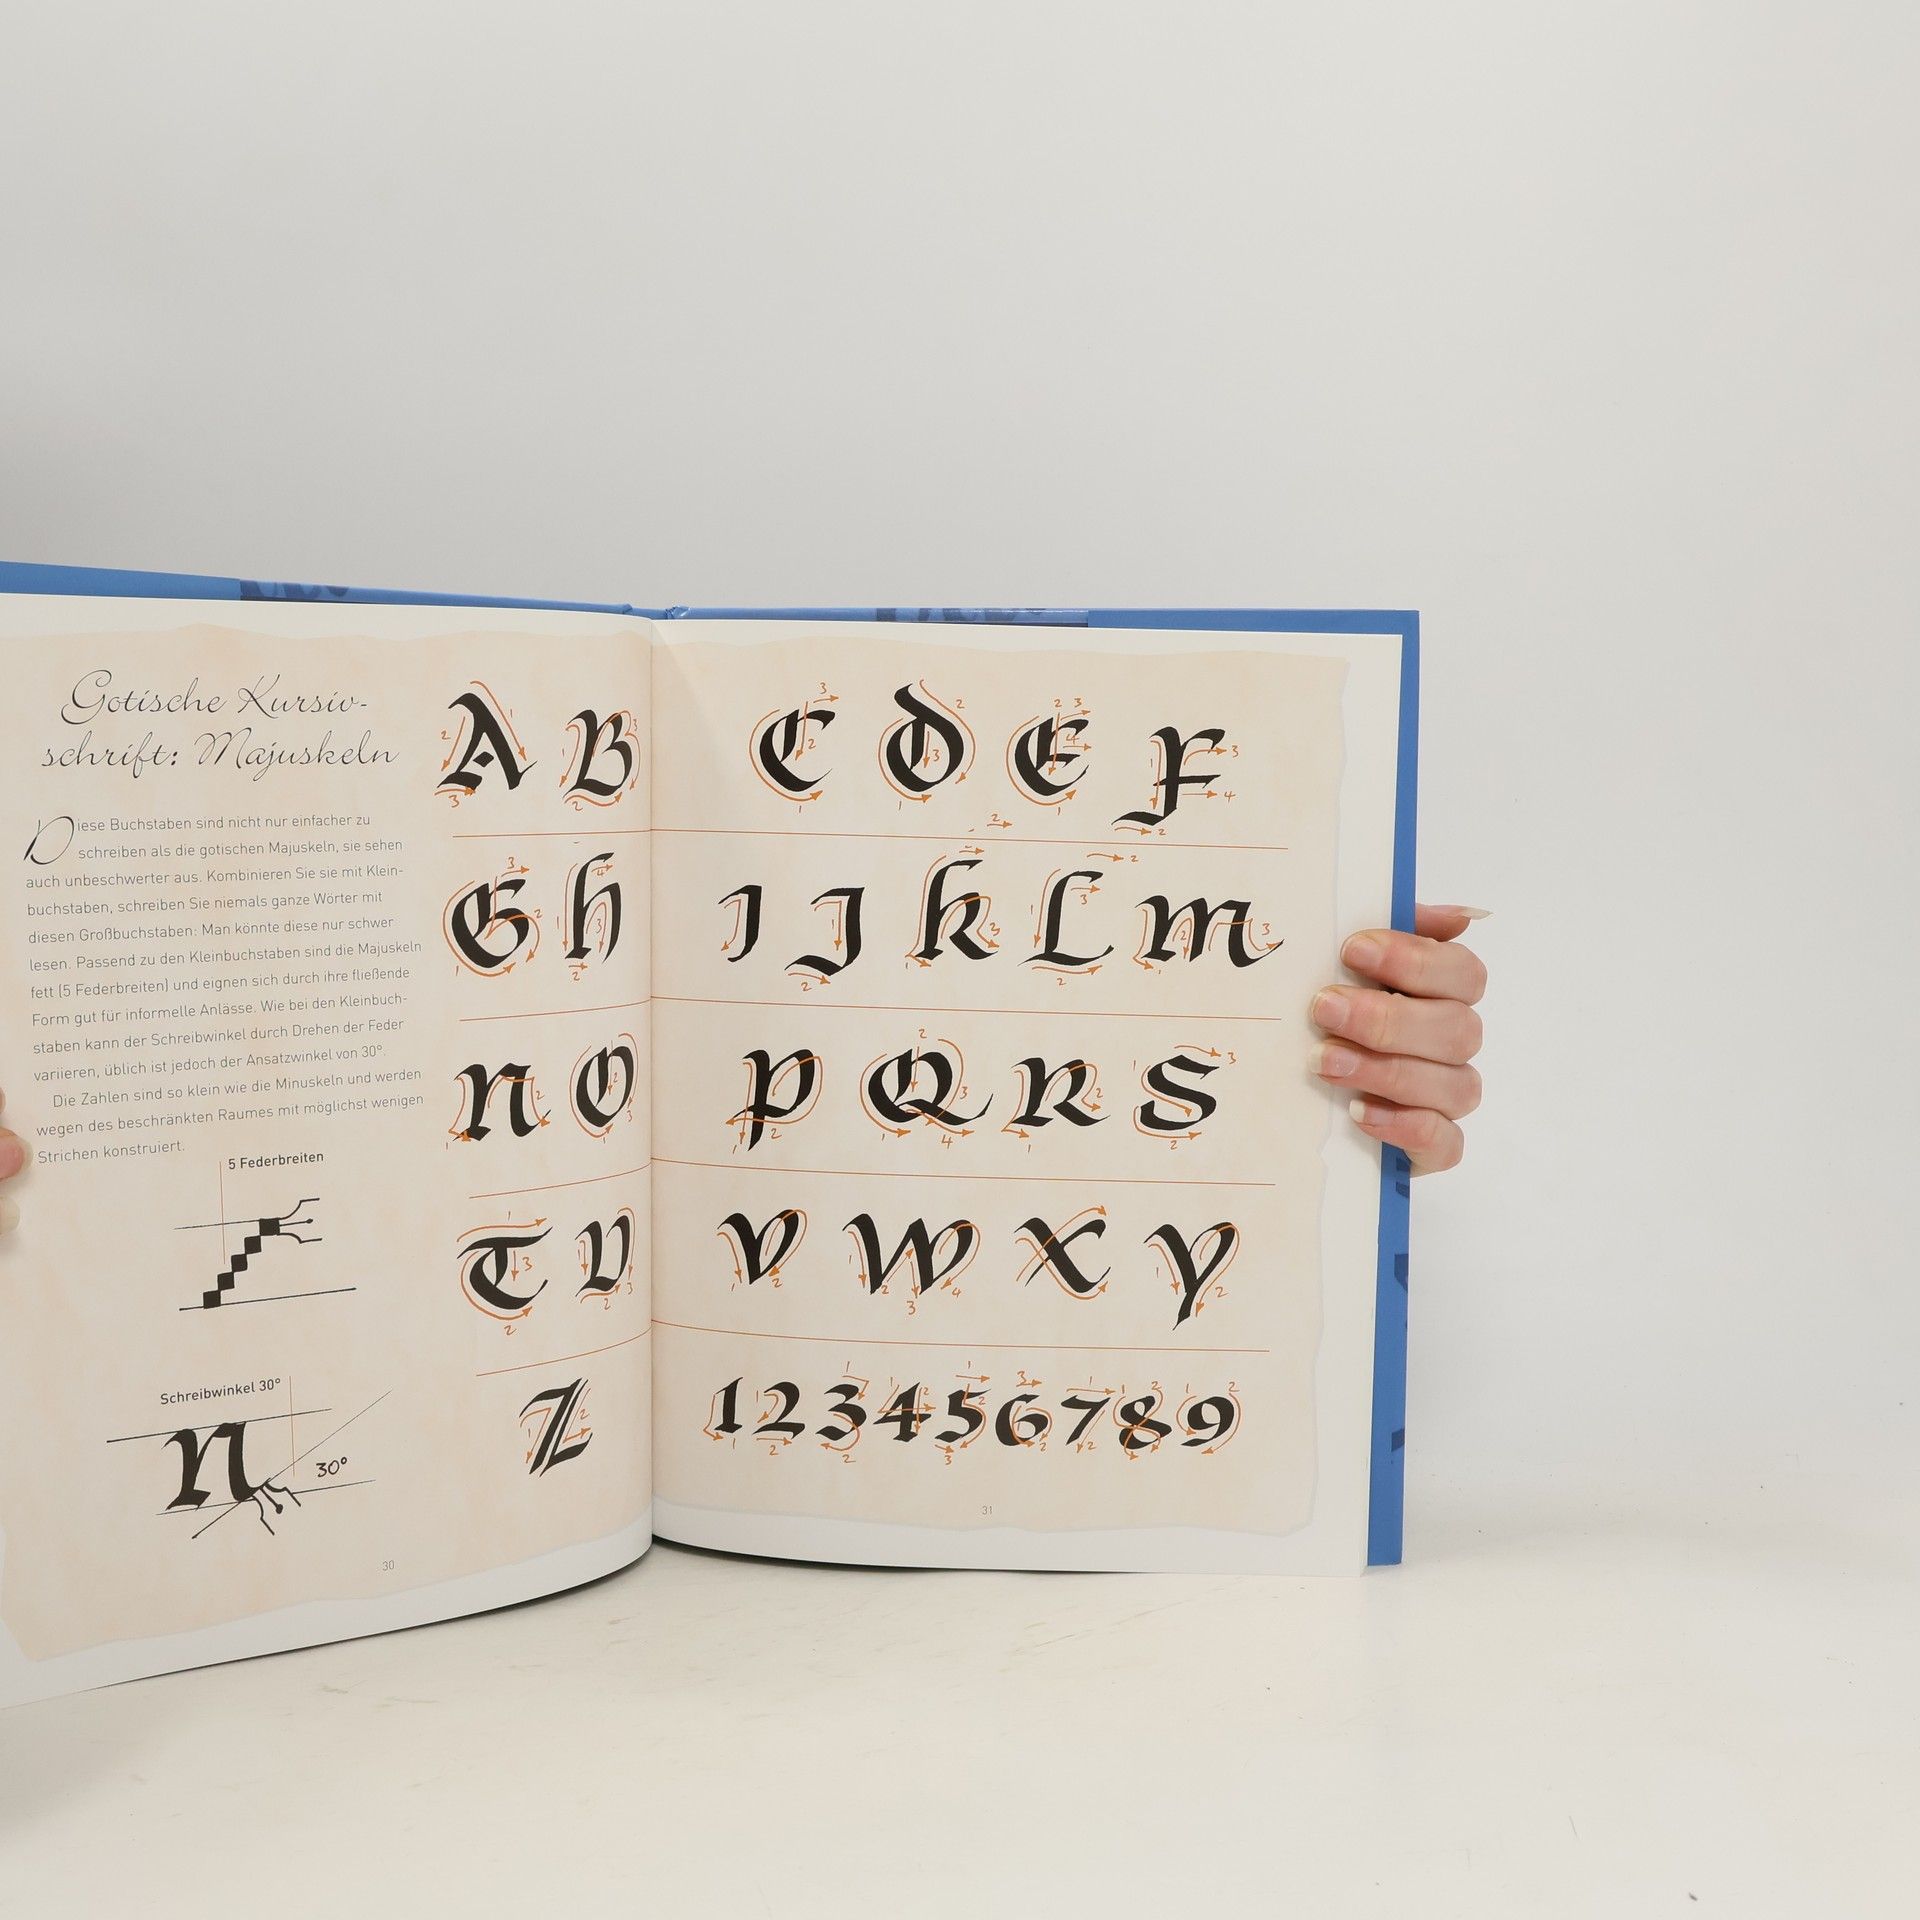 Gotische Kursiv-
schrift: Majuskeln
Diese Buchstaben sind nicht nur einfacher zu
schreiben als die gotischen Majuskeln, sie sehen
auch unbeschwerter aus. Kombinieren Sie sie mit Klein-
buchstaben, schreiben Sie niemals ganze Wörter mit
diesen Großbuchstaben: Man könnte diese nur schwer
lesen. Passend zu den Kleinbuchstaben sind die Majuskeln
fett (5 Federbreiten) und eignen sich durch ihre fließende
Form gut für informelle Anlässe. Wie bei den Kleinbuch-
staben kann der Schreibwinkel durch Drehen der Feder
variieren, üblich ist jedoch der Ansatzwinkel von 30°.
Die Zahlen sind so klein wie die Minuskeln und werden
wegen des beschränkten Raumes mit möglichst wenigen
Strichen konstruiert.
5 Federbreiten
Schreibwinkel 30°
n
30°
30
A B C D E F
G H I J K L M
N O P Q R S
T U V W X Y
Z 1 2 3 4 5 6 7 8 9
31